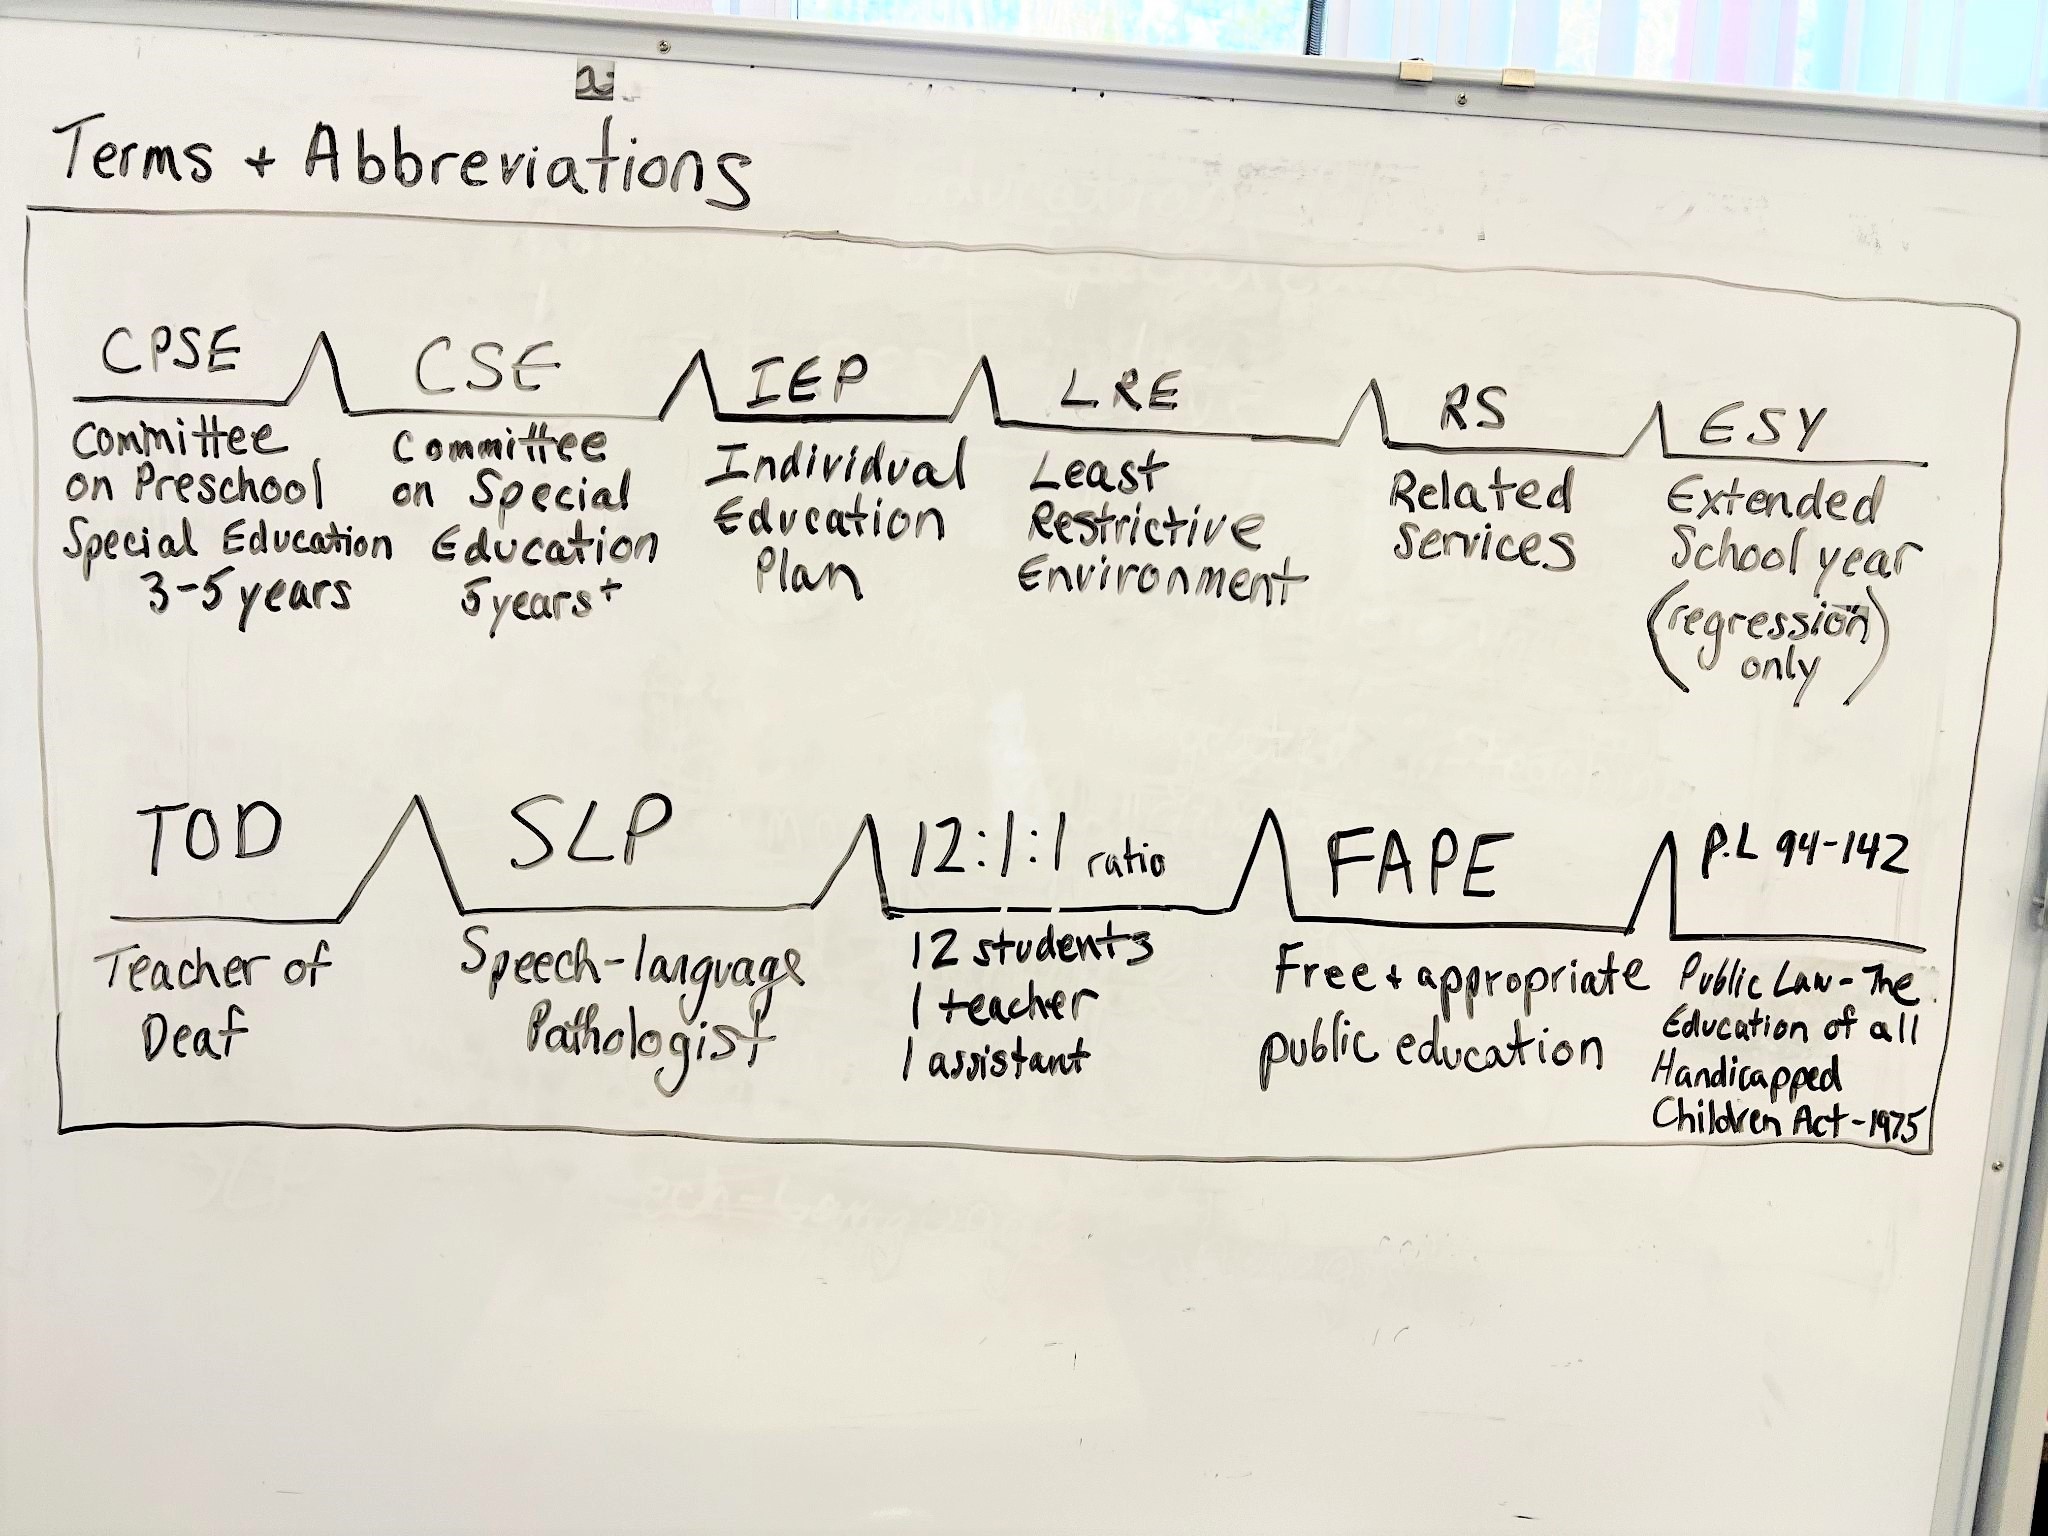 Terms + Abbreviations
CPSE
Committee
on Preschool
Special Education
3-5 years
CSE
Committee
on Special
Education
5 years+
IEP
Individual
Education
Plan
LRE
Least
Restrictive
Environment
RS
Related
Services
ESY
Extended
School year
(regression
only)
TOD
Teacher of
Deaf
SLP
Speech-language
Pathologist
12:1:1 ratio
12 students
1 teacher
1 assistant
FAPE
Free + appropriate
public education
P.L 94-142
Public Law - The
Education of all
Handicapped
Children Act - 1975